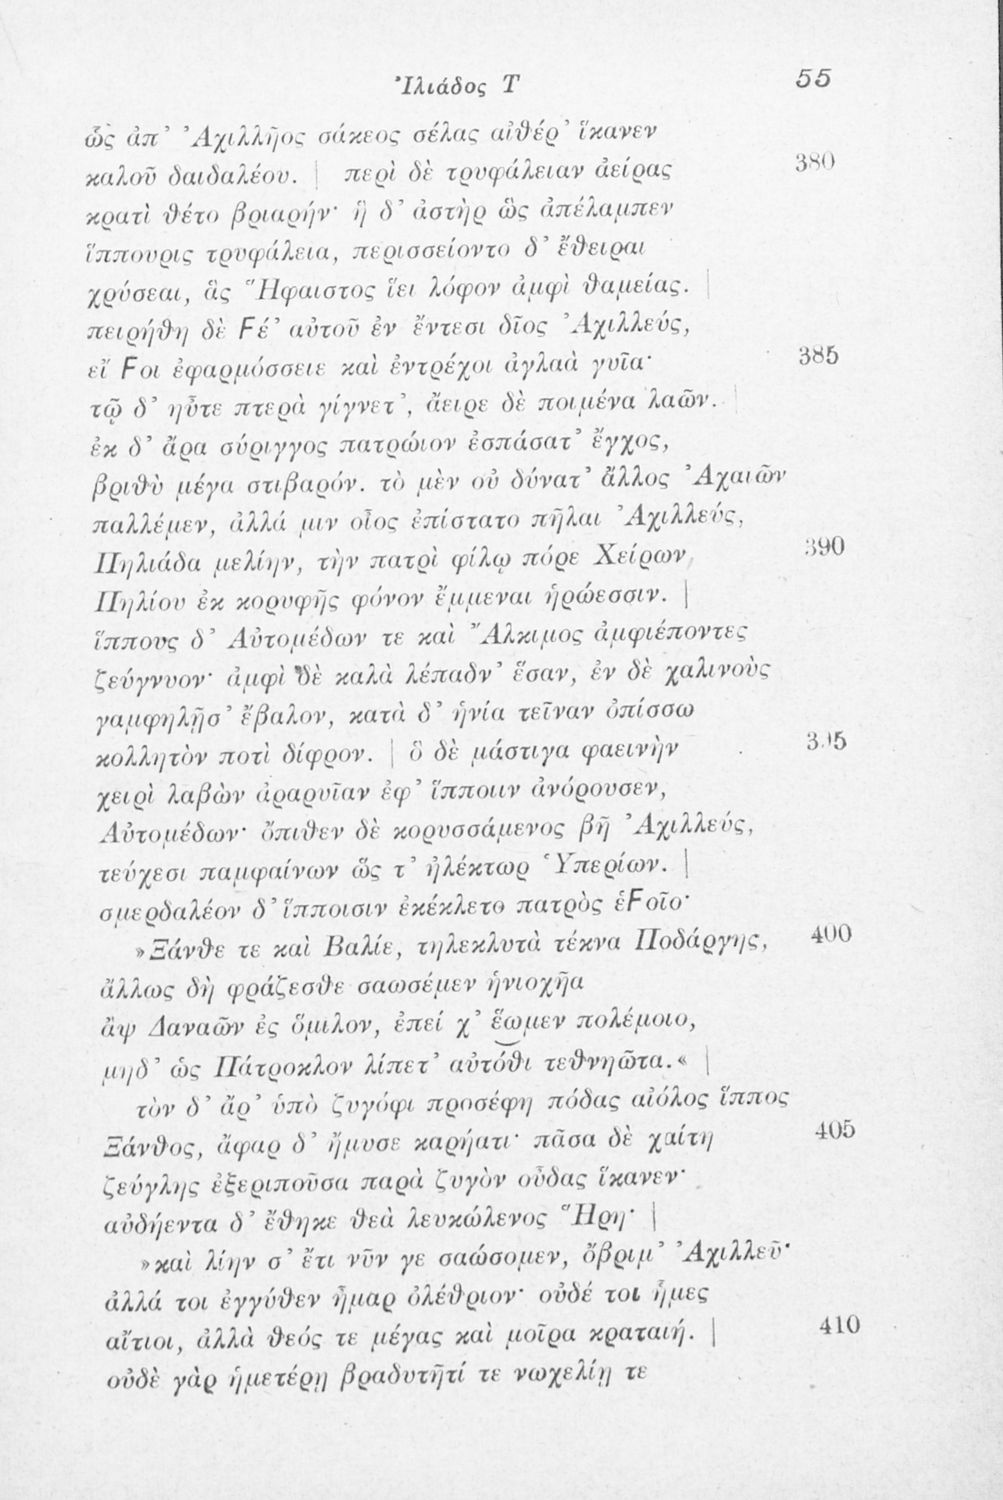 Ἰλιάδος Τ 55
ὣς ἀπ’ Ἀχιλλῆος σάκεος σέλας αἰθέρ’ ἵκανεν
καλοῦ δαιδαλέου. | περὶ δὲ τρυφάλειαν ἀείρας 380
κρατὶ θέτο βριαρήν· ἣ δ’ ἀστὴρ ὣς ἀπέλαμπεν
ἵππουρις τρυφάλεια, περισσείοντο δ’ ἔθειραι
χρύσεαι, ἃς Ἥφαιστος ἵει λόφον ἀμφὶ θαμείας. |
πειρήθη δὲ Ϝέ’ αὐτοῦ ἐν ἔντεσι δῖος Ἀχιλλεύς,
εἴ Ϝοι ἐφαρμόσσειε καὶ ἐντρέχοι ἀγλαὰ γυῖα· 385
τῷ δ’ ηὖτε πτερὰ γίγνετ’, ἄειρε δὲ ποιμένα λαῶν. |
ἐκ δ’ ἄρα σύριγγος πατρώιον ἐσπάσατ’ ἔγχος,
βριθὺ μέγα στιβαρόν. τὸ μὲν οὐ δύνατ’ ἄλλος Ἀχαιῶν
παλλέμεν, ἀλλά μιν οἶος ἐπίστατο πῆλαι Ἀχιλλεύς,
Πηλιάδα μελίην, τὴν πατρὶ φίλῳ πόρε Χείρων 390
Πηλίου ἐκ κορυφῆς φόνον ἔμμεναι ἡρώεσσιν. |
ἵππους δ’ Αὐτομέδων τε καὶ Ἄλκιμος ἀμφιέποντες
ζεύγνυον· ἀμφὶ δὲ καλὰ λέπαδν’ ἕσαν, ἐν δὲ χαλινοὺς
γαμφηλῇσ’ ἔβαλον, κατὰ δ’ ἡνία τεῖναν ὀπίσσω
κολλητὸν ποτὶ δίφρον. | ὃ δὲ μάστιγα φαεινὴν 395
χειρὶ λαβὼν ἀραρυῖαν ἐφ’ ἵπποιιν ἀνόρουσεν,
Αὐτομέδων· ὄπιθεν δὲ κορυσσάμενος βῆ Ἀχιλλεύς,
τεύχεσι παμφαίνων ὥς τ’ ἠλέκτωρ Ὑπερίων. |
σμερδαλέον δ’ ἵπποισιν ἐκέκλετο πατρὸς ἑϜοῖο·
»Ξάνθε τε καὶ Βαλίε, τηλεκλυτὰ τέκνα Ποδάργης, 400
ἄλλως δὴ φράζεσθε σαωσέμεν ἡνιοχῆα
ἂψ Δαναῶν ἐς ὅμιλον, ἐπεί χ’ ἕωμεν πολέμοιο,
μηδ’ ὡς Πάτροκλον λίπετ’ αὐτόθι τεθνηῶτα.« |
τὸν δ’ ἄρ’ ὑπὸ ζυγόφι προσέφη πόδας αἰόλος ἵππος
Ξάνθος, ἄφαρ δ’ ἤμυσε καρήατι· πᾶσα δὲ χαίτη 405
ζεύγλης ἐξεριποῦσα παρὰ ζυγὸν οὖδας ἵκανεν·
αὐδήεντα δ’ ἔθηκε θεὰ λευκώλενος Ἥρη· |
»καὶ λίην σ’ ἔτι νῦν γε σαώσομεν, ὄβριμ’ Ἀχιλλεῦ·
ἀλλά τοι ἐγγύθεν ἦμαρ ὀλέθριον· οὐδέ τοι ἧμες
αἴτιοι, ἀλλὰ θεός τε μέγας καὶ μοῖρα κραταιή. | 410
οὐδὲ γὰρ ἡμετέρῃ βραδυτῆτί τε νωχελίῃ τε